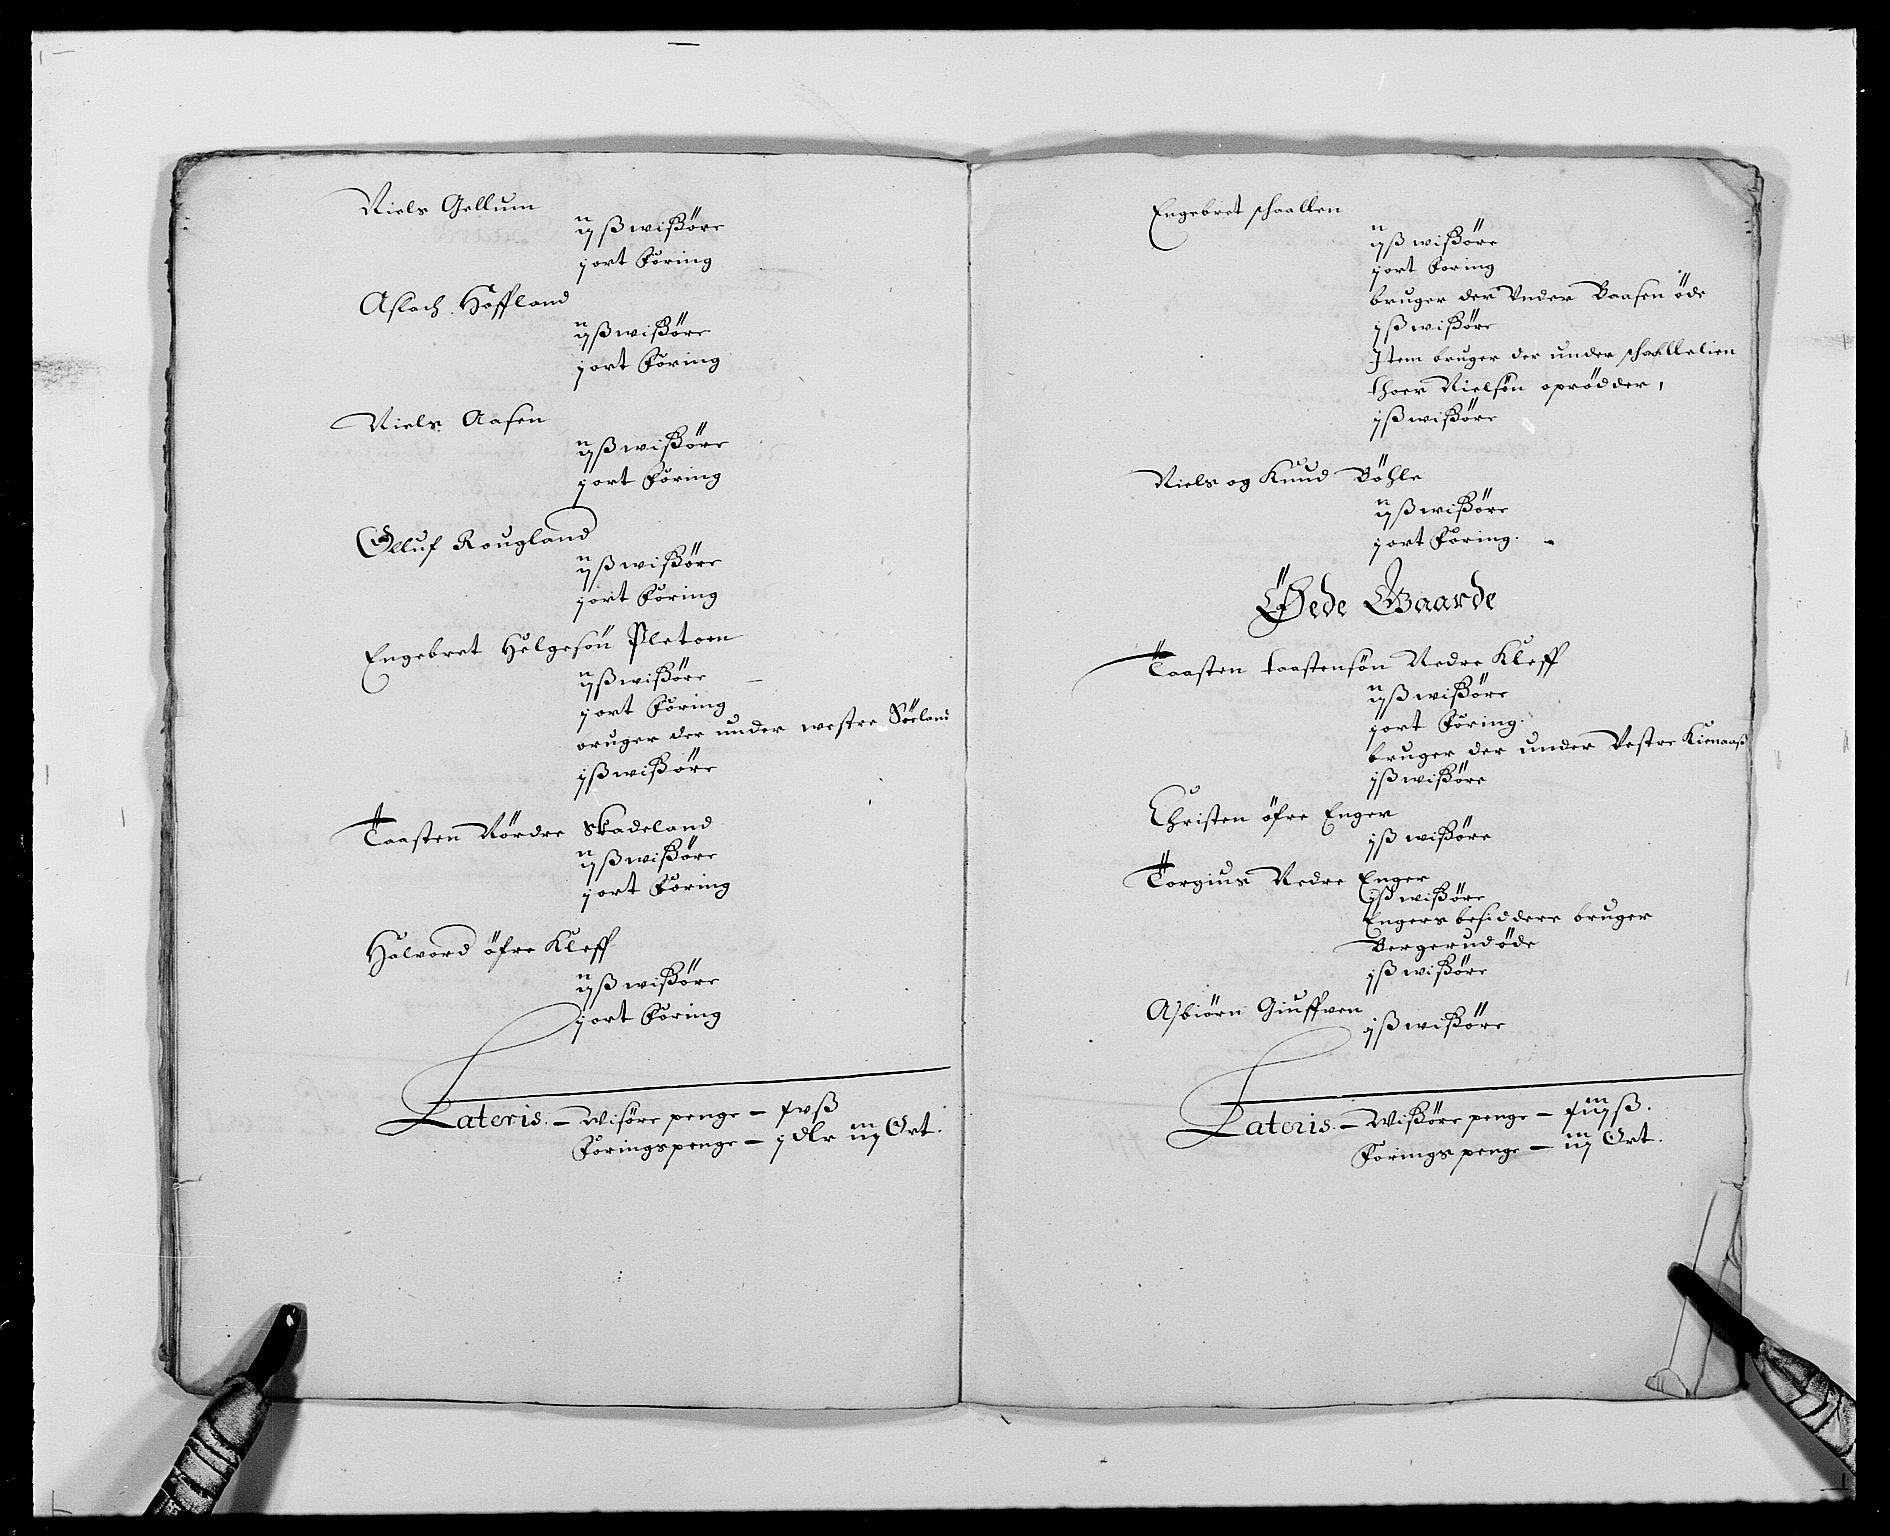 Niels Gellum
ij ß wißöre
j ort Foring
Aslach Hoffland
ij ß wißöre
j ort Foring
Niels Aasen
ij ß wißöre
j ort Foring
Olluf Rougland
ij ß wißöre
j ort Foring
Engebret Helgesön Pletoen
ij ß wißöre
j ort Foring
bruger der under westre Söeland
j ß wißöre
Taasten Nördre Skadeland
ij ß wißöre
j ort Foring
Halvord öfre Kleff
ij ß wißöre
j ort Foring
Lateris. — Wisöre penge — xv ß
Foringspenge — j dlr iij Ort.
Engebret schaallen
ij ß wißöre
j ort Foring
bruger der Vnder Baasen öde
j ß wißöre
Item bruger der under schaallelien
Thoer Nielsön oprödder,
j ß wißöre
Niels og Knud Böhle
ij ß wißöre
j ort Foring.
Öede Gaarde
Taasten taastensön Nedre Kleff
ij ß wißöre
j ort Foring.
bruger der under Vestre Kienaaß
j ß wißöre
Christen öfre Enger
j ß wißöre
Torgius Nedre Enger
j ß wißöre
Engers besiddere bruger
Bergerud öde
j ß wißöre
Asbiörn Giuffven
j ß wißöre
Lateris. — Wißöre penge — xiij ß.
Forings penge — iij Ort.